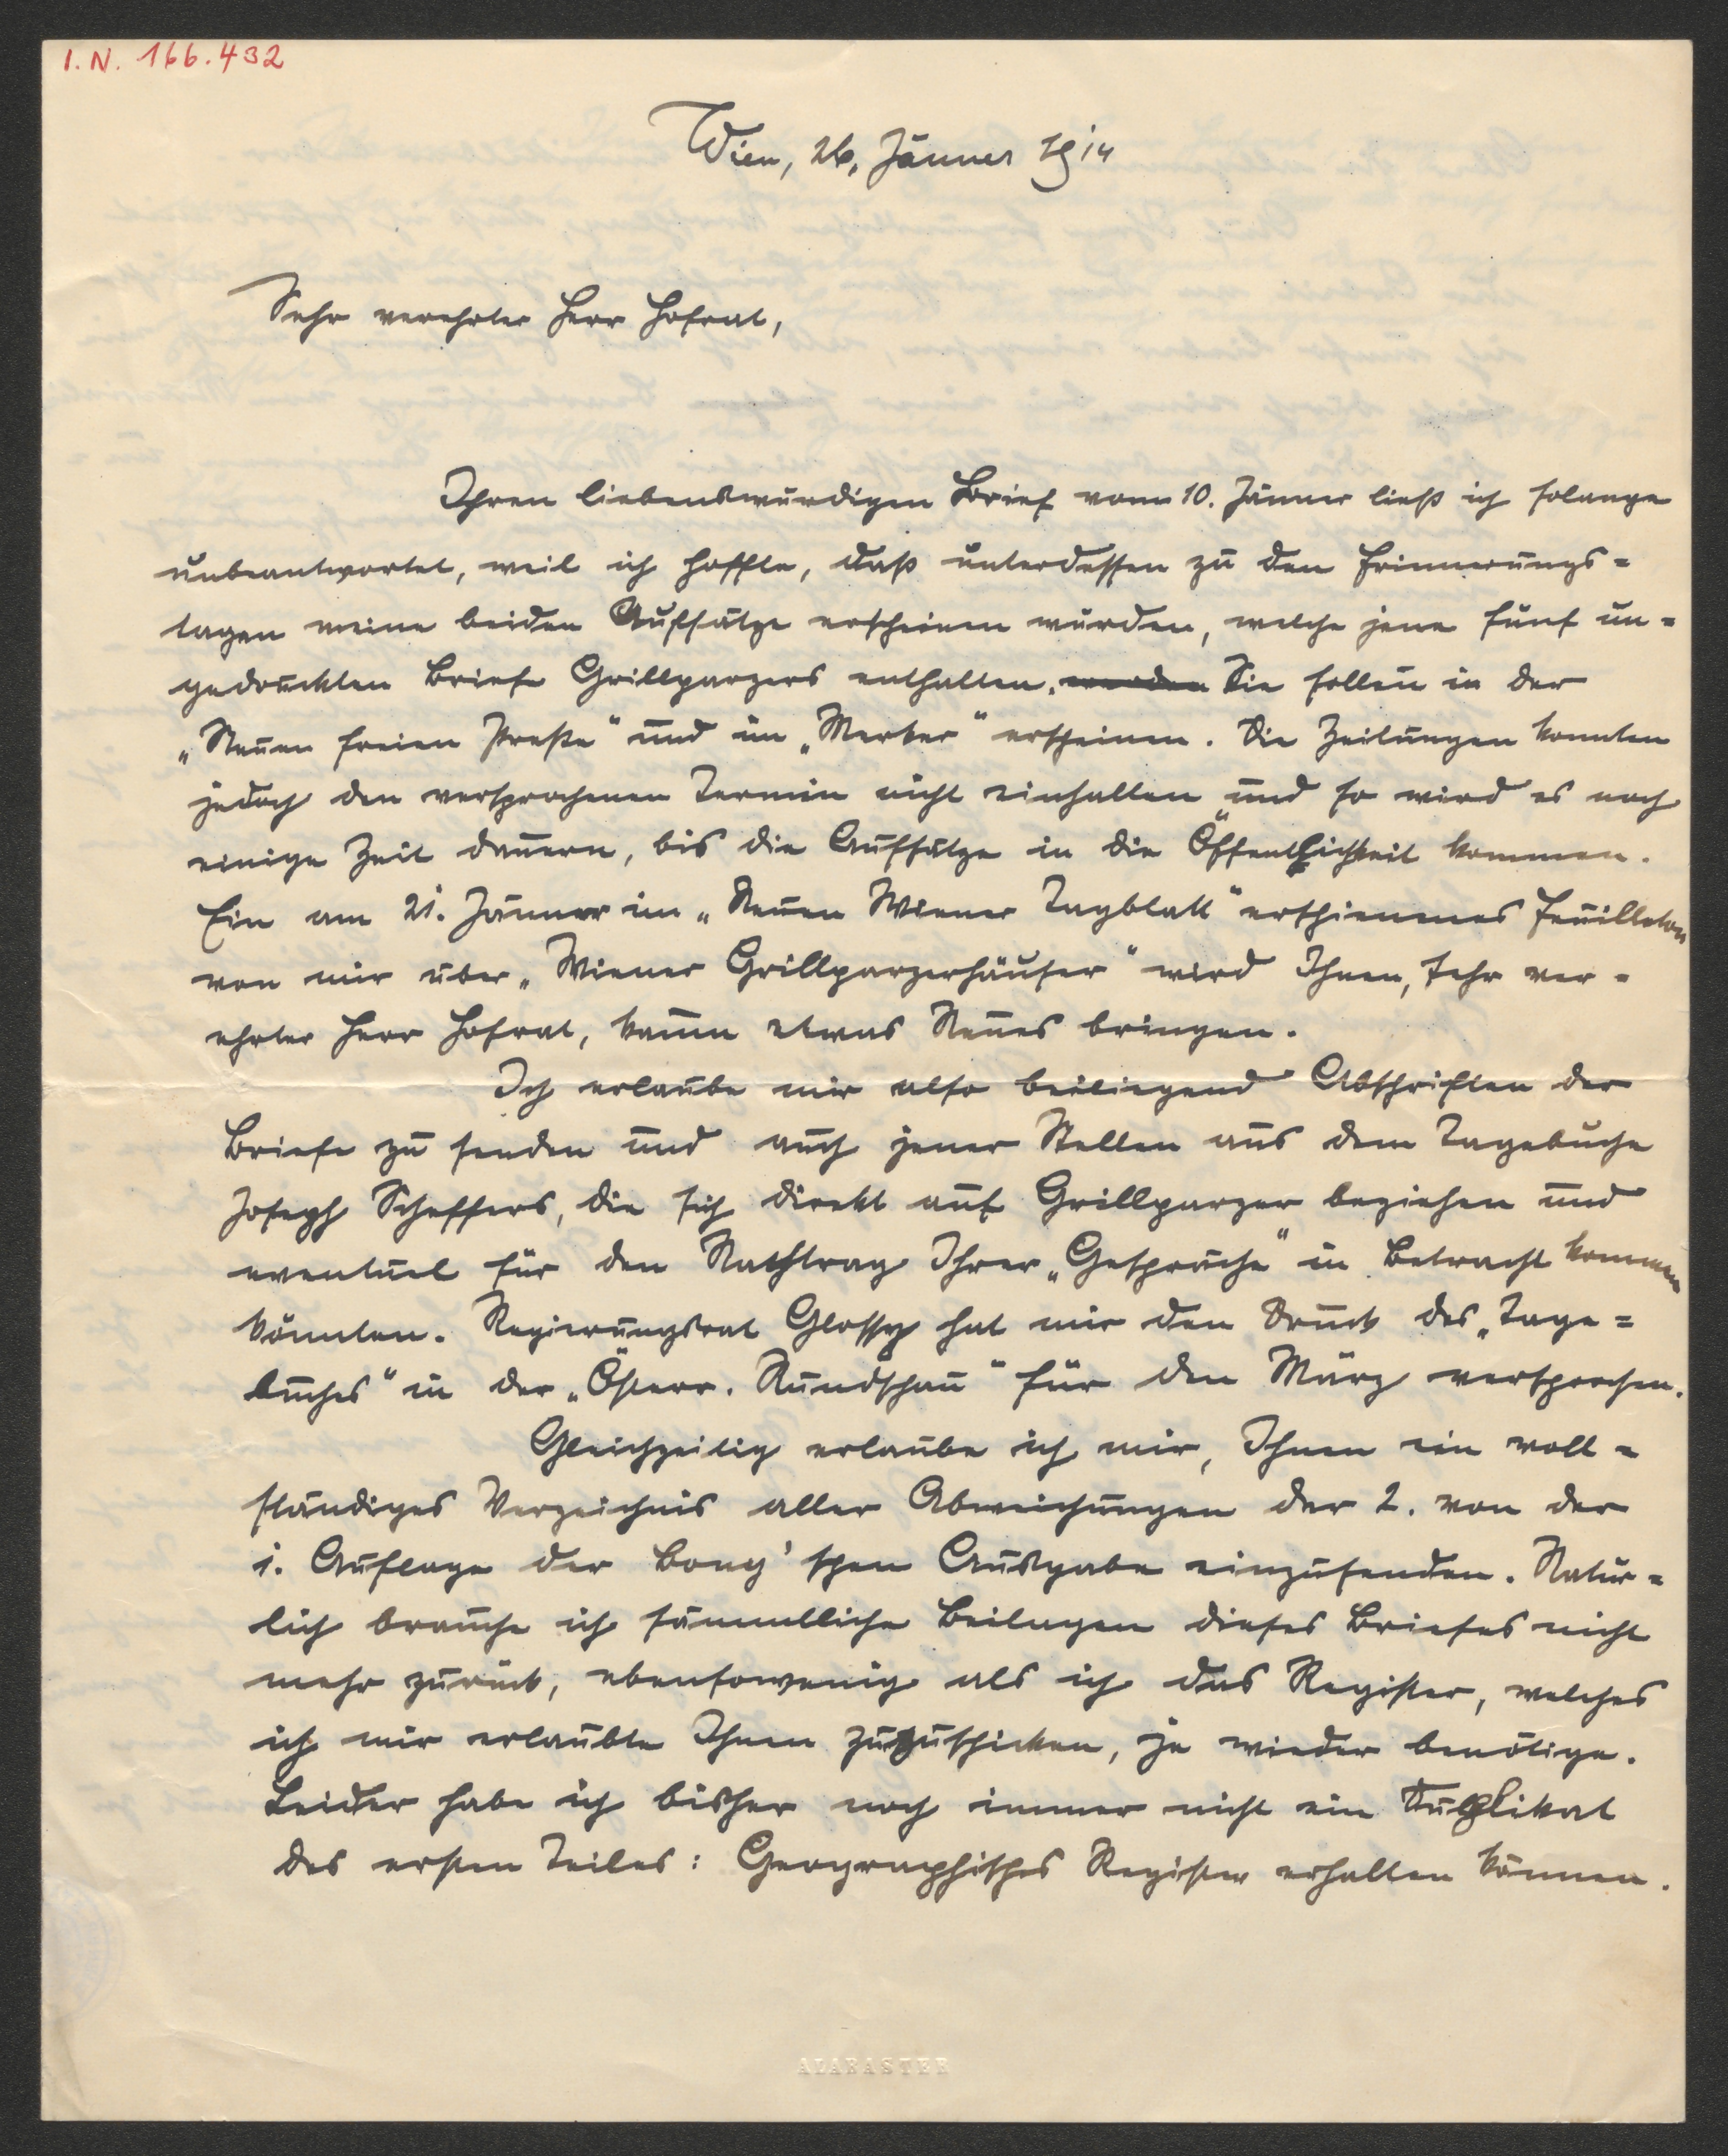 I. N. 166.432
Wien, 26. Jänner 1914
Sehr verehrter Herr Hofrat,
Ihren liebenswürdigen Brief vom 10. Jänner ließ ich solange
unbeantwortet, weil ich hoffte, daß unterdessen zu den Erinnerungs=
tagen meine beiden Aufsätze erscheinen würden, welche jene fünf un=
gedruckten Briefe Grillparzers enthalten. werden Sie sollen in der
„Neuen freien Presse" und im „Merker" erscheinen. Die Zeitungen konnten
jedoch den versprochenen Termin nicht einhalten und so wird es noch
einige Zeit dauern, bis die Aufsätze in die Öffentlichkeit kommen.
Ein am 21. Jänner im „Neuen Wiener Tagblatt" erschienenes Feuilleton
von mir über „Wiener Grillparzerhäuser" wird Ihnen, sehr ver=
ehrter Herr Hofrat, kaum etwas Neues bringen.
Ich erlaube mir also beiliegend Abschriften der
Briefe zu senden und auch jener Stellen aus dem Tagebuche
Joseph Scheffers, die sich direkt auf Grillparzer beziehen und
eventuel für den Nachtrag Ihrer „Gespräche" in Betracht kommen
könnten. Regierungsrat Glossy hat mir den Druck des „Tage=
buches" in der „Österr. Rundschau" für den März versprochen.
Gleichzeitig erlaube ich mir, Ihnen ein voll=
ständiges Verzeichnis aller Abweichungen der 2. von der
1. Auflage der Bong'schen Ausgabe einzusenden. Natür=
lich brauche ich sämmtliche Beilagen dieses Briefes nicht
mehr zurück, ebensowenig als ich das Register, welches
ich mir erlaubte Ihnen zuzuschicken, je wieder benötige.
Leider habe ich bisher noch immer nicht ein Duplikat
des ersten Teiles: Geographisches Register erhalten können.
ALABASTER